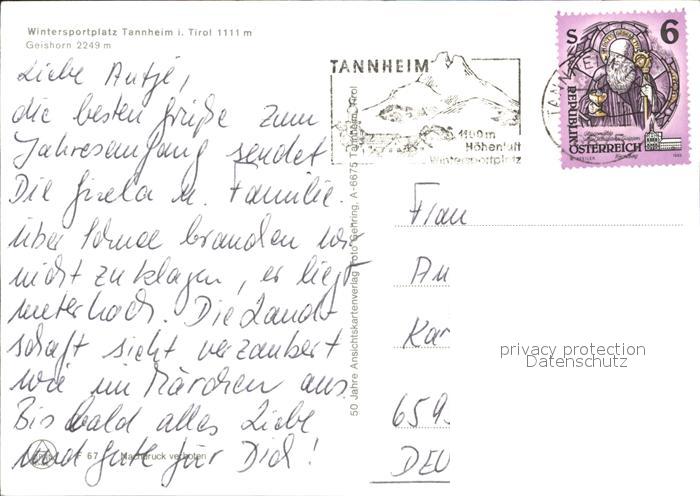 Wintersportplatz Tannheim i. Tirol 1111 m
Geishorn 2249 m
Liebe Antje,
die besten Grüße zum
Jahresanfang sendet
Dir Gisela u. Familie.
Über Schnee brauchen wir
nicht zu klagen, er liegt
meterhoch. Die Land-
schaft sieht verzaubert
wie im Märchen aus.
Bis bald alles Liebe
und Gute für Dich!
F 67 Nachdruck verboten
50 Jahre Ansichtskartenverlag Foto Gehring, A-6675 Tannheim, Tirol
TANNHEIM
1100m
Höhenluft
Wintersportplatz
S 6
REPUBLIK
ÖSTERREICH
Frau
An
Kar
659
DEU
privacy protection
Datenschutz